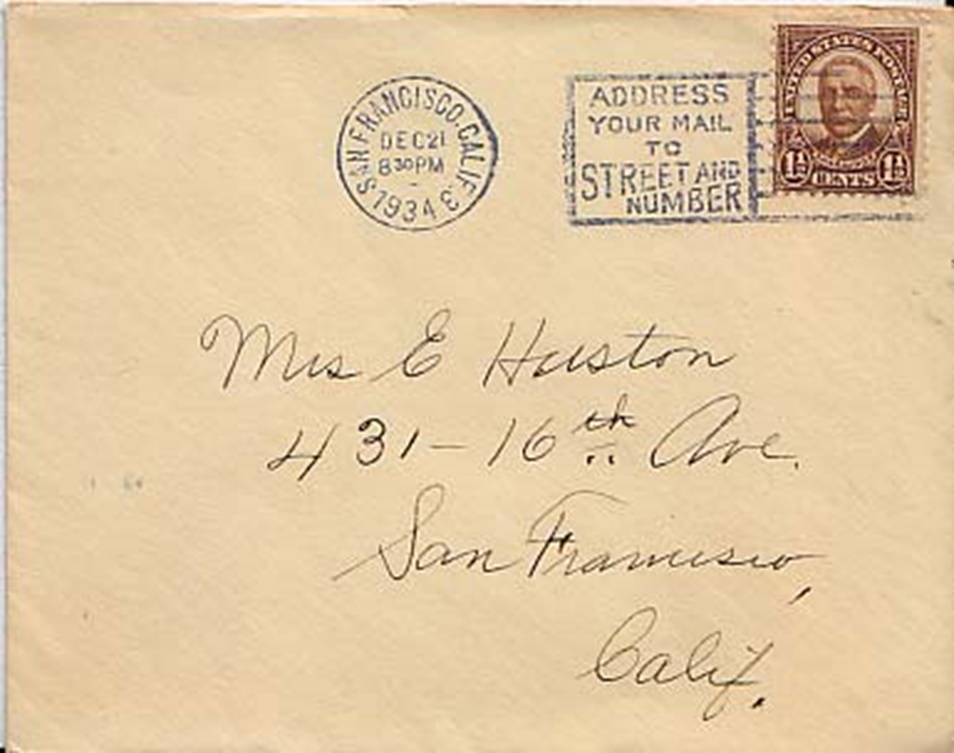 SAN FRANCISCO, CALIF. 3
DEC 21
8 30 PM
1934
ADDRESS
YOUR MAIL
TO
STREET AND
NUMBER
UNITED STATES POSTAGE
1½ CENTS 1½
Mrs E Huston
431-16th Ave.
San Francisco,
Calif.